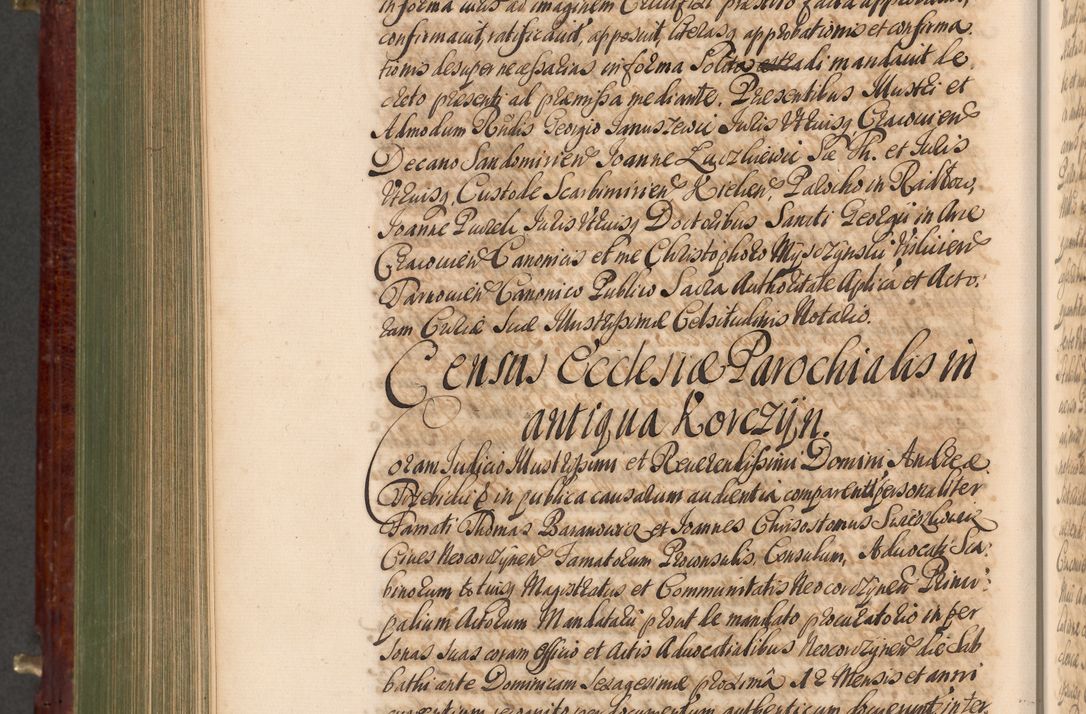 in forma iuris ad imaginem Crucifixi
confirmavit, ratificavit, apposuit, literasq approbationis et confirma-
tionis desuper necessarias in forma solita extradi mandavit de-
creto presenti ad præmissa mediante. Præsentibus Illustri et
Admodum Rndis Georgio Januszewic Juris Utriusq Cracovien
Decano Sandomirien Joanne Luczkiewic Sæ Th. et Juris
Utriusq Custode Scarbimirien, Kielien, Parocho in Radłow,
Joanne Juris Utriusq Doctoribus Sancti Georgii in Arce
Cracovien Canonicis et me Christophoro Myszczynski Vislicien
Tarnovien Canonico Publico Sacra Authoritate Aplica et Acto-
rum Curiæ Suæ Illustrissimæ Celsitudinis Notario.
Census Ecclesiæ Parochialis in
antiqua Korczijn.
Coram Judicio Illustrissimi et Reverendissimi Domini Andreæ
in publica causarum audientia comparentes personaliter
Famati Thomas Baranowicz et Joannes Chrisostomus
Cives Neocorczijnen Famatorum Proconsulis, Consulum, Advocati Sca-
binorum totiusq Magistratus et Communitatis Neocorczijnen Princi-
palium Actorum Mandatarii prout de mandato procuratorio in per
sonas suas coram officio et actis Advocatialibus Neocorczijnen die Sab
bathi ante Dominicam Sexagesimæ proxima 12 Mensis et anni
documentum authenticum docuerunt inter